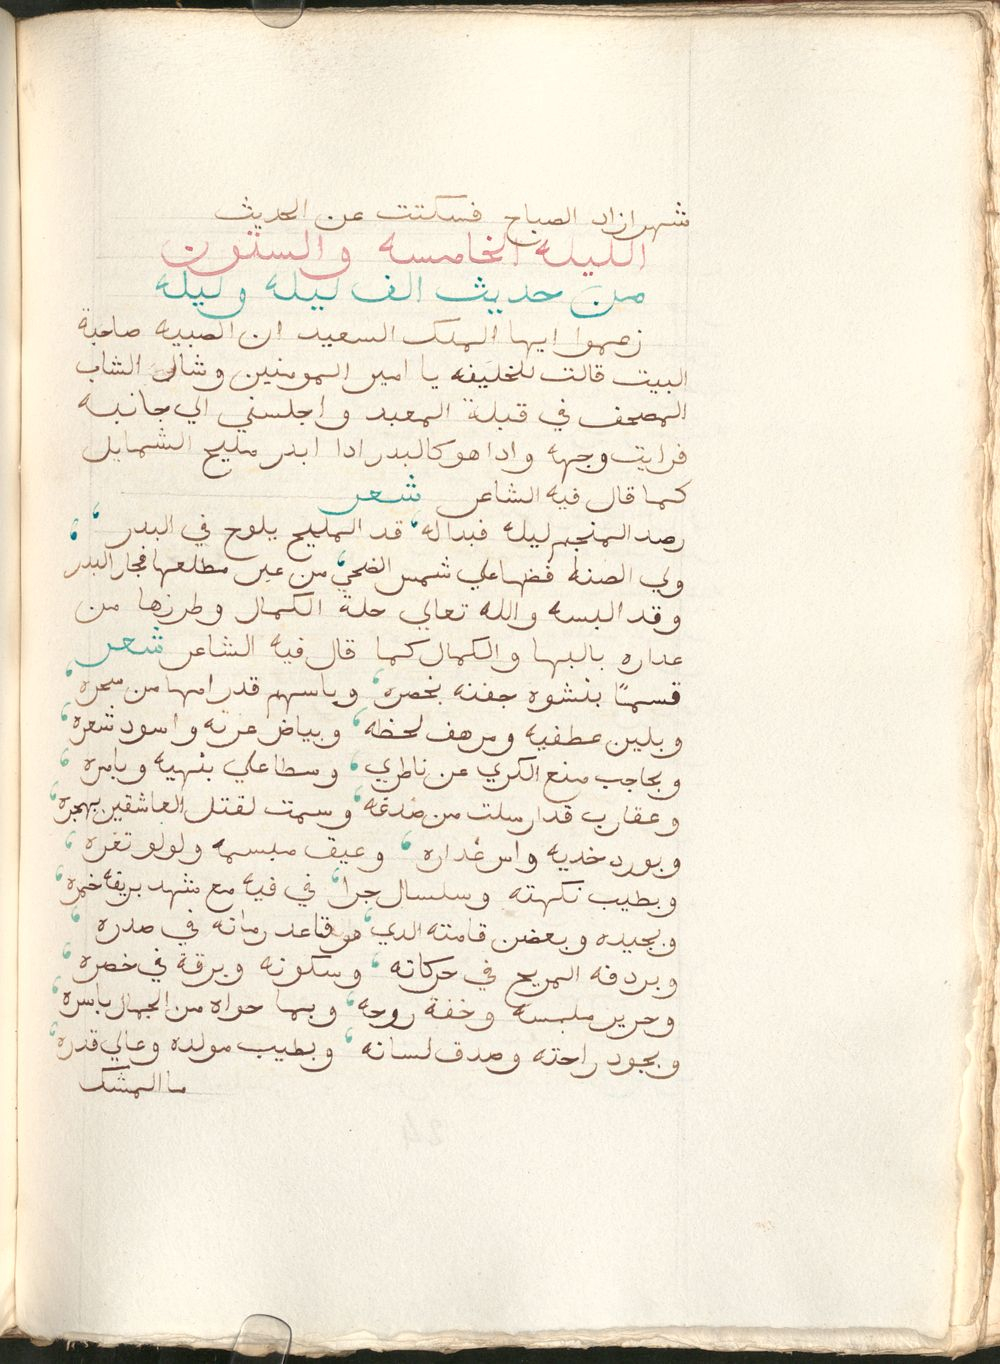 شهرازاد الصباح فسكتت عن الحديث
الليله الخامسه والستون
من حديث الف ليله وليله
زعموا ايها الملك السعيد ان الصبيه صاحبة
البيت قالت للخليفه يا امير المومنين وشال الشاب
المصحف في قبلة المعبد واجلسني الي جانبه
فرايت وجهه واداهو كالبدر ادا ابدر مليح الشمايل
كما قال فيه الشاعر شعر
رصد المنجم ليله فبداله قد المليح يلوح في البدر
ولي الصنه فضها علي شمس الضحي من عير مطلعها فجار البدر
وقد البسه والله تعالي حلة الكمال وطرزها من
عداره بالبها والكمال كما قال فيه الشاعر شعر
قسمًا بنشوه جفنه بخصره وباسهم قدرامها من سحره
وبلين عطفيه ومرهف لحظه وبياض عرته واسود شعره
وبحاجب منع الكري عن ناظري وسطا علي بنهيه وبامره
وعقارب قدارسلت من صدغه وسمت لقتل العاشقين بهجره
وبورد خديه واس عداره وعيق مبسمه ولولو تغره
وبطيب نكهته وسلسال جرا في فيه مع شهد بريقه خمره
وبجيده وبعضن قامته الدي هو قاعد رمانه في صدره
وبردفه المريح في حركاته وسكونه وبرقة في خصره
وحرير ملبسه وخفة روحه وبما حواه من الجمال باسره
وبجود راحته وصدق لسانه وبطيب مولده وعالي قدره
ما المشك